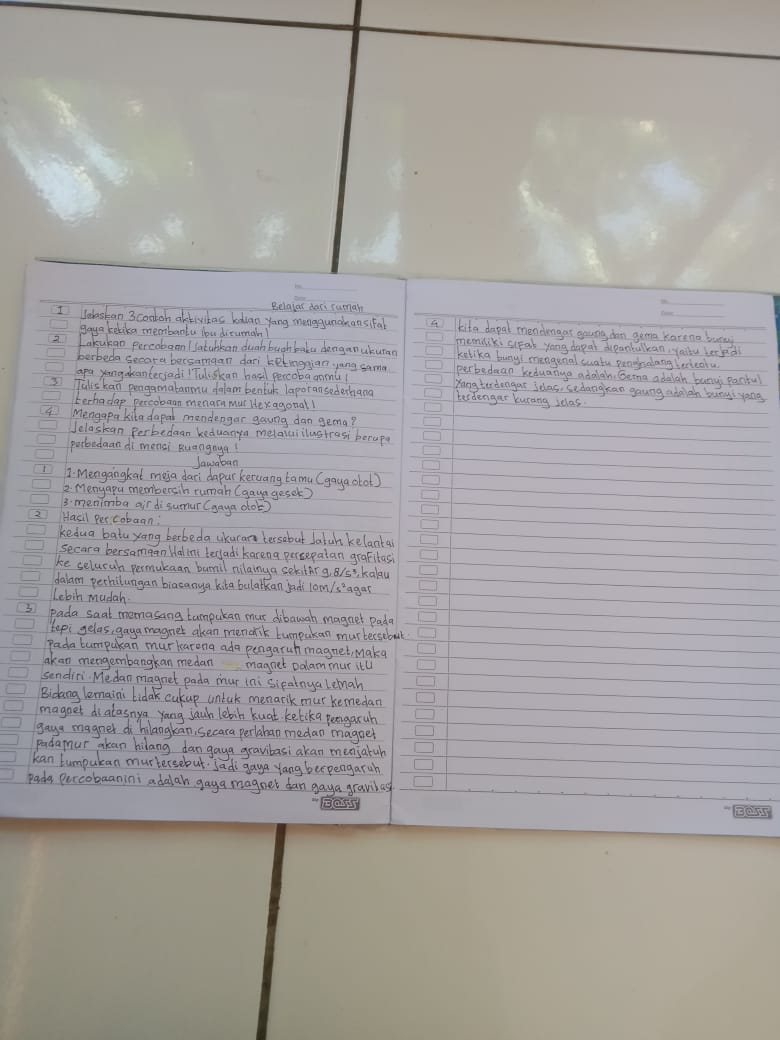 Belajar dari rumah
1 Jelaskan 3 contoh aktivitas kalian yang menggunakan sifat
gaya ketika membantu ibu dirumah!
2 Lakukan percobaan! Jatuhkan duah buah batu dengan ukuran
berbeda secara bersamaan dari ketinggian yang sama
apa yang akan terjadi! Tuliskan hasil percobaanmu!
3 Tuliskan pengamatanmu dalam bentuk laporan sederhana
terhadap percobaan menara Mur Hexagonal!
4 Mengapa kita dapat mendengar gaung dan gema?
Jelaskan Perbedaan keduanya melalui ilustrasi berupa
perbedaan dimensi Ruangnya!
Jawaban
1 1. Mengangkat meja dari dapur keruang tamu (gaya otot)
2. Menyapu membersih rumah (gaya gesek)
3. menimba air di sumur (gaya otot)
2 Hasil Percobaan:
kedua batu yang berbeda ukuran tersebut Jatuh kelantai
secara bersamaan Hal ini terjadi karena percepatan grafitasi
ke seluruh permukaan bumi nilainya sekitar 9,8/s², kalau
dalam perhitungan biasanya kita bulatkan jadi 10m/s² agar
Lebih mudah.
3 pada saat memasang tumpukan mur dibawah magnet pada
tepi gelas, gaya magnet akan menarik tumpukan mur tersebut.
Pada tumpukan mur karena ada pengaruh magnet, Maka
akan mengembangkan medan magnet Dalam mur itu
sendiri. Medan magnet pada mur ini sifatnya Lemah
Bidang lemaini tidak cukup untuk menarik mur kemedan
magnet di atasnya yang jauh lebih kuat ketika pengaruh
gaya magnet di hilangkan, secara perlahan medan magnet
padamur akan hilang dan gaya gravitasi akan menjatuh
kan tumpukan mur tersebut. Jadi gaya yang berpengaruh
pada Percobaanini adalah gaya magnet dan gaya gravitasi
BOSS
No.
Date
4 kita dapat mendengar gaung dan gema karena bunyi
memiliki sifat yang dapat dipantulkan, yaitu terjadi
ketika bunyi mengenai suatu penghalang tertentu.
perbedaan keduanya adalah, Gema adalah bunyi pantul
Yang terdengar jelas, sedangkan gaung adalah bunyi yang
terdengar kurang jelas.
BOSS